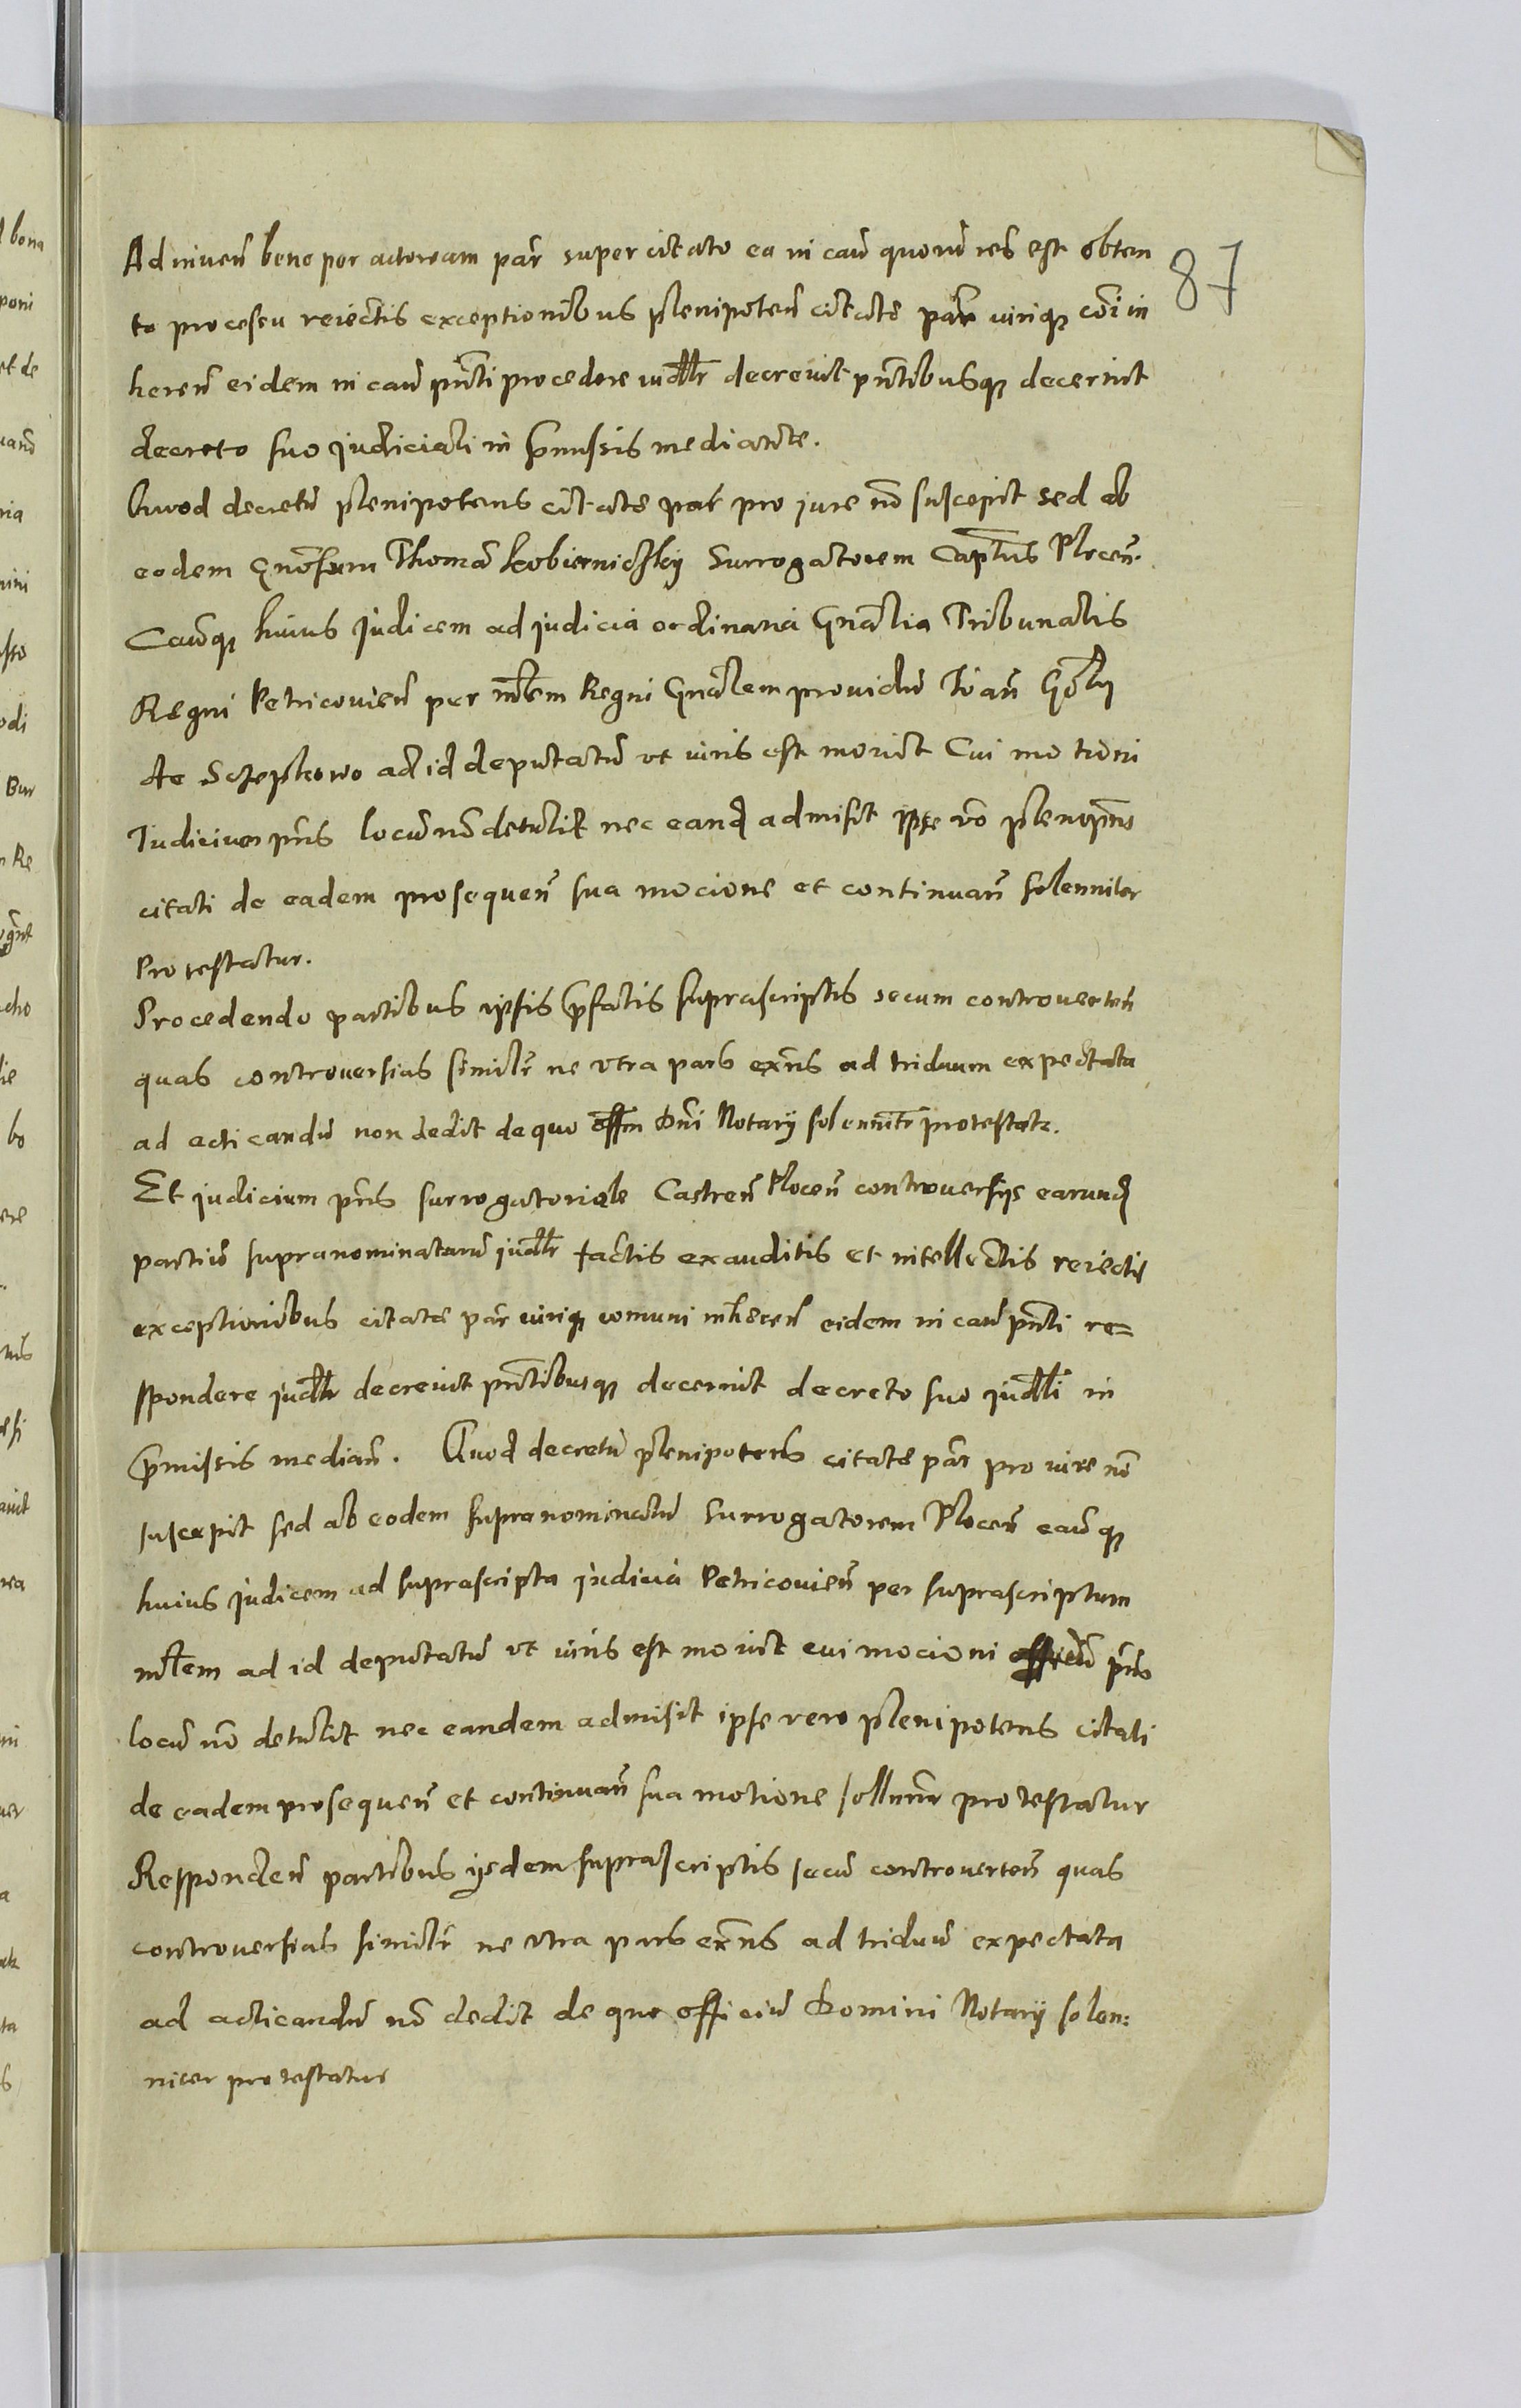 87
Adinven̄ bene per actoream par̄ super citato ea in cau͞ quorum res est obten
to processu reiectis exceptionibus plenipoten̄ citatae par̄ iurique com̄i in
heren̄ eidem in cau͞ pn̄ti procedere iudlr decrevit pn̄tibusque decernit
decreto suo judiciali in p̄missis mediante.
Quod decretū plenipotens citatae par̄ pro jure nō suscepit sed ab
eodem Gn̄osum Thomā Kobierniczky Surrogatorem Captūs Plocen̄.
Cau͞que huius judicem ad judicia ordinaria Gn̄alia Tribunalis
Regni Petricovien̄ per mlem Regni Gn̄alem providū Joan̄ Goły
de Sczepkowo ad id deputatū ut iuris est movit Cui motioni
Judicium pn̄s locū nō detulit nec eand admisit ipse vō plenipn̄s
citati de eadem prosequen̄ sua mocione et continuan̄ solenniter
Protestatur.
Procedendo partibus ipsis p̄fatis suprascriptis secum controverten̄
quas controversias similr̄ ne utra pars exn̄s ad triduum expectata
ad acticandū non dedit de quo offm Dn̄i Notarij solennitr protestatr.
Et judicium pn̄s surrogatoriale Castren̄ Plocen̄ controversijs earund
partiū supranominatarū judlr factis exauditis et intellectis reiectis
exceptionibus citatae par̄ iurique comuni inheren̄ eidem in cau͞ pn̄ti re=
spondere judlr decrevit pn̄tibusque decernit decreto suo judli in
p̄missis median̄. Quod decretū plenipotens citatae par̄ pro iure nō
suscepit sed ab eodem supranominatū Surrogatorem Plocen̄ cau͞que
huius judicem ad suprascripta judicia Petricovien̄ per suprascriptum
mlem ad id deputatū ut iuris est movit cui mocioni officiū pn̄s
locū nō detulit nec eandem admisit ipse vero plenipotens citati
de eadem prosequen̄ et continuan̄ sua motione sollennr protestatur
Responden̄ partibus ijsdem suprascriptis secū controverten̄ quas
controversias similr̄ ne utra pars exn̄s ad triduū expectata
ad acticandū nō dedit de quo officiū Domini Notarij solen:
niter protestatur